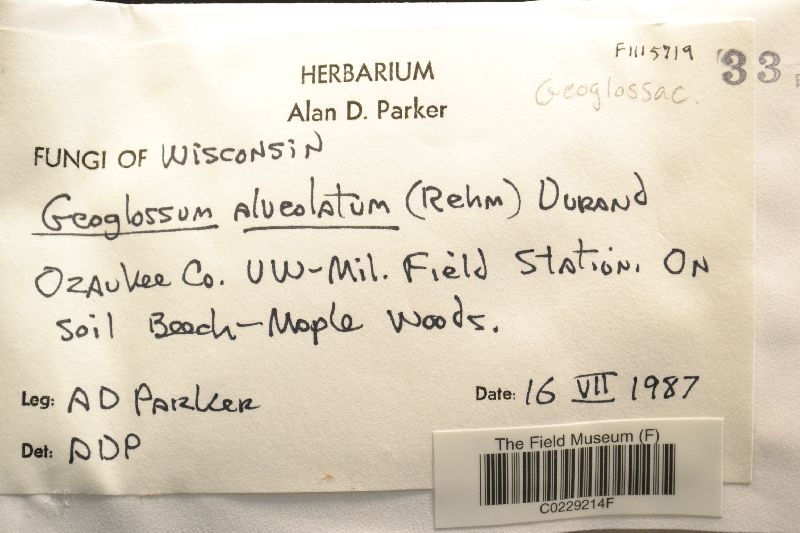 F1115719
33
HERBARIUM
Geoglossac.
Alan D. Parker
FUNGI OF WISCONSIN
Geoglossum alveolatum (Rehm) Durand
Ozaukee Co. UW-Mil. Field Station. On
soil Beech-Maple Woods.
Leg: AD Parker
Date: 16 VII 1987
Det: ADP
The Field Museum (F)
C0229214F